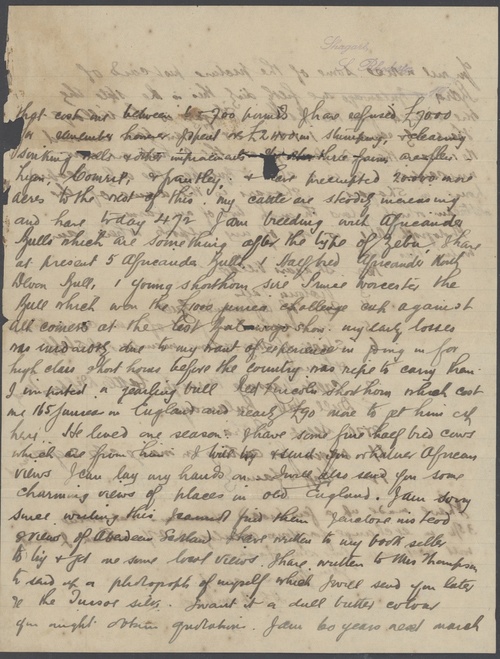 that cost me between 6 & 700 pounds I have refused £7000
remember however I spent £2,400 on stumping, & clearing
sinking wells & other improvements three farms are
Comrie, & Frantley; & have preempted 20000 more
acres to the rest of this my cattle are steadily increasing
and have today 472 I am breeding with Africander
Bulls which are something after the type of Zebu, I have
at present 5 Africander Bulls 1 Halfbred Africander North
Devon Bull, 1 young shorthorn sire Prince Worcester the
Bull which won the £1000 guinea challenge cup against
all comers at the last Bulawayo show. my early losses
was undoubtedly due to my want of experience in going in for
high class short horns before the country was ripe to carry them.
I imported a yearling bull Red Lincoln shorthorn which cost
me 165 guineas in England and nearly £90 more to get him out
here. He lived one season. I have some fine half bred cows
which are from him. I will try & send you whatever African
views I can lay my hands on I will also send you some
charming views of places in old England. I am sorry
since writing this I cannot find them I enclose instead
views of Aberdeen Scotland I have written to my book seller
to try & get me some local views. I have written to Miss Thompson
to send you a photograph of myself which I will send you later
re the Tussor silk. I want it a dull butter colour
you might obtain quotations. I am 60 years next march